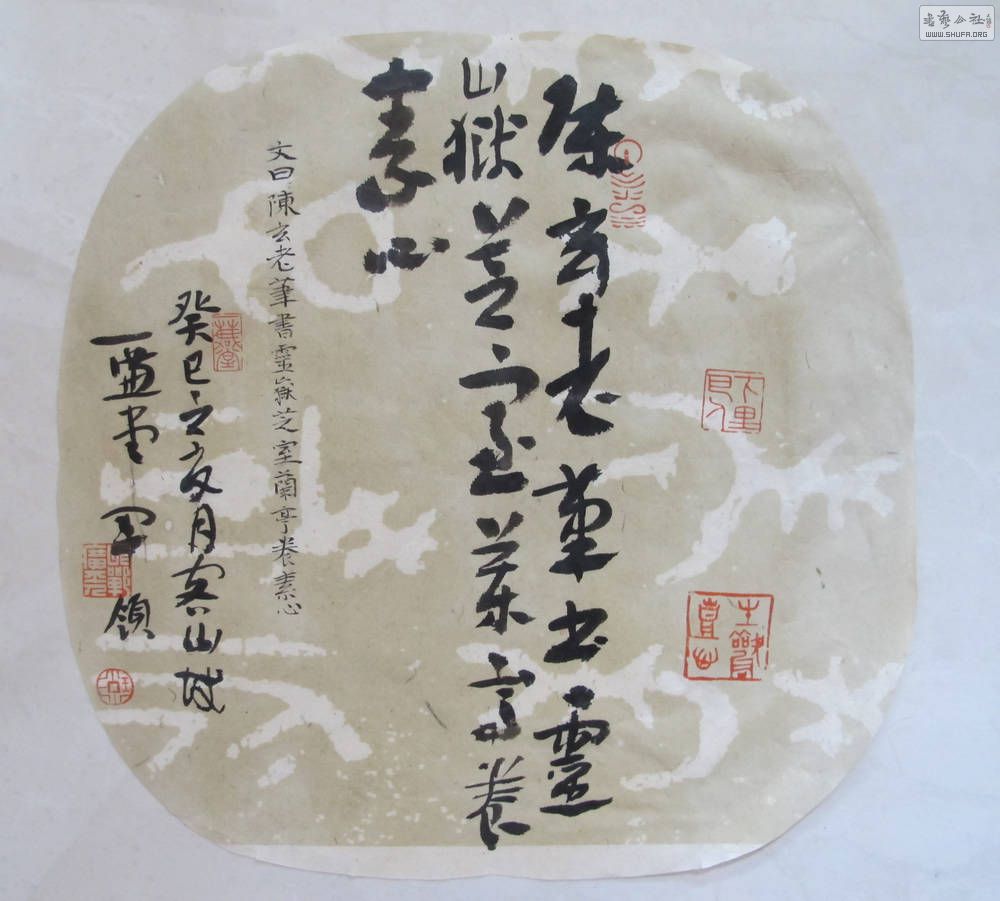 陳玄老筆書靈
山嶽芝室蘭亭養
素心
文曰陳玄老筆書靈嶽芝室蘭亭養素心
癸巳之夏月客山城
一盏堂軍領
書藝公社
WWW.SHUFA.ORG